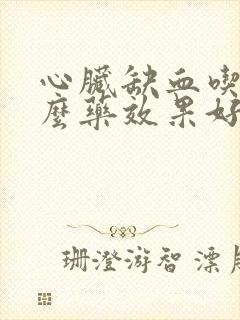 心臟缺血喫
麼藥效果好
珊澄游智漂